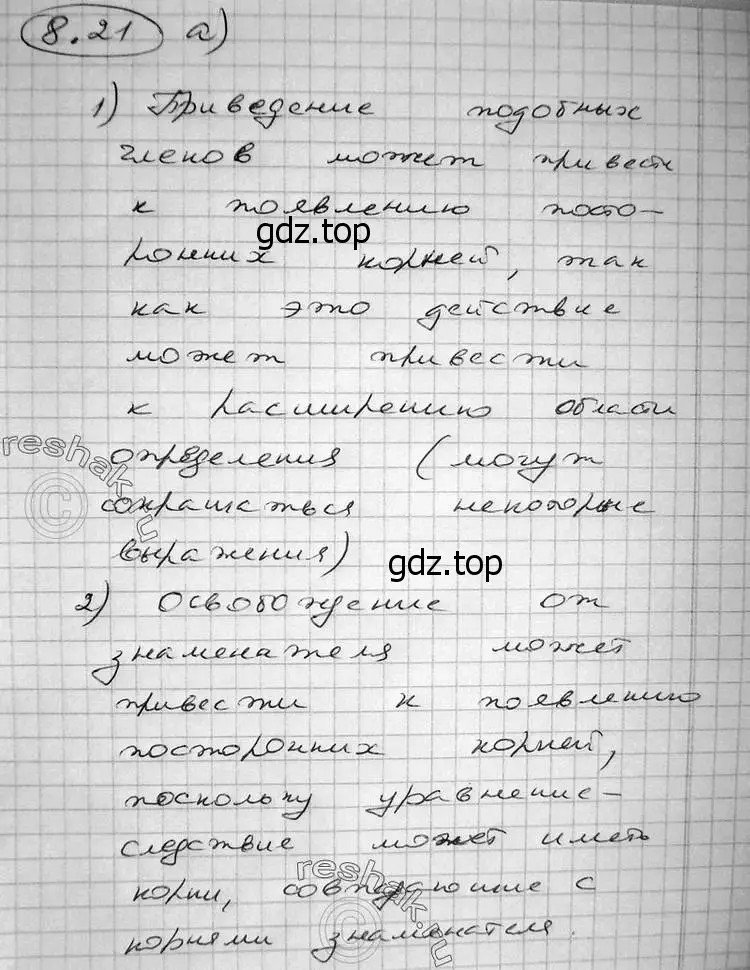 8.21 а)
1) Приведение подобных
членов может привести
к появлению посто-
gdz.top
ронних корней, так
как это действие
может привести
к расширению области
reshak.ru
определения (могут
©
сокращаться некоторые
выражения)
gdz.top
2) Освобождение от
знаменателя может
привести к появлению
посторонних корней,
поскольку уравнение-
следствие может иметь
reshak.ru
корни, совпадающие с
©
корнями знаменателя.